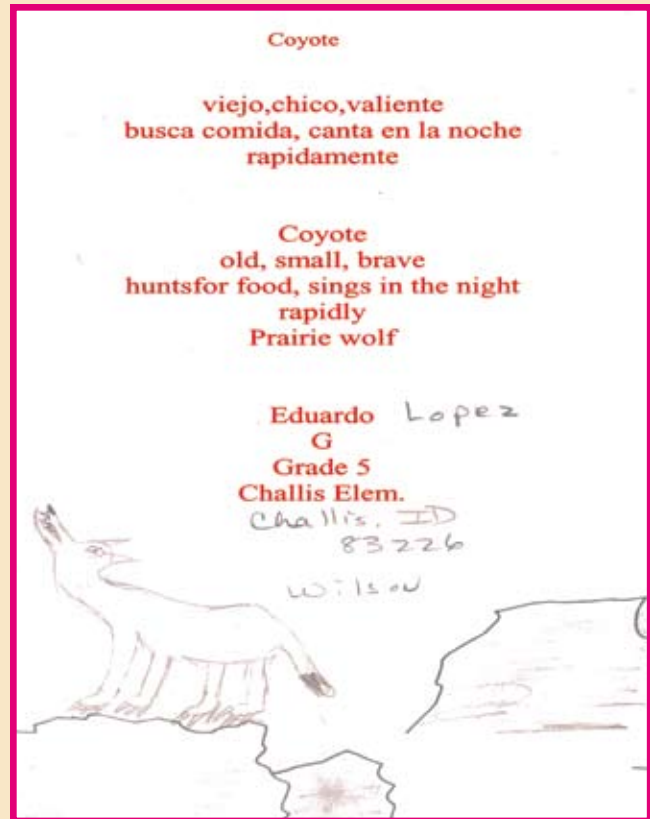 Coyote
viejo,chico,valiente
busca comida, canta en la noche
rapidamente
Coyote
old, small, brave
huntsfor food, sings in the night
rapidly
Prairie wolf
Eduardo Lopez
G
Grade 5
Challis Elem.
Challis, ID
83226
Wilson